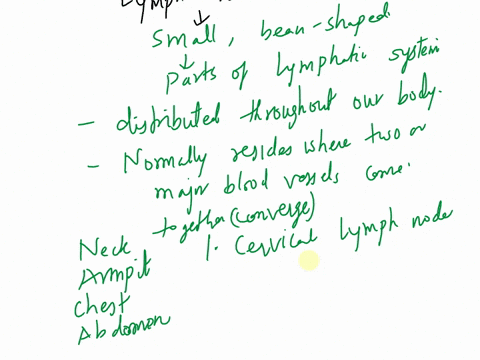 Lymph
Small, bean-shaped
parts of lymphatic system
- distributed throughout our body.
- Normally resides where two or
major blood vessels come
together (converge)
Neck
1. Cervical lymph node
Armpit
Chest
Abdomen